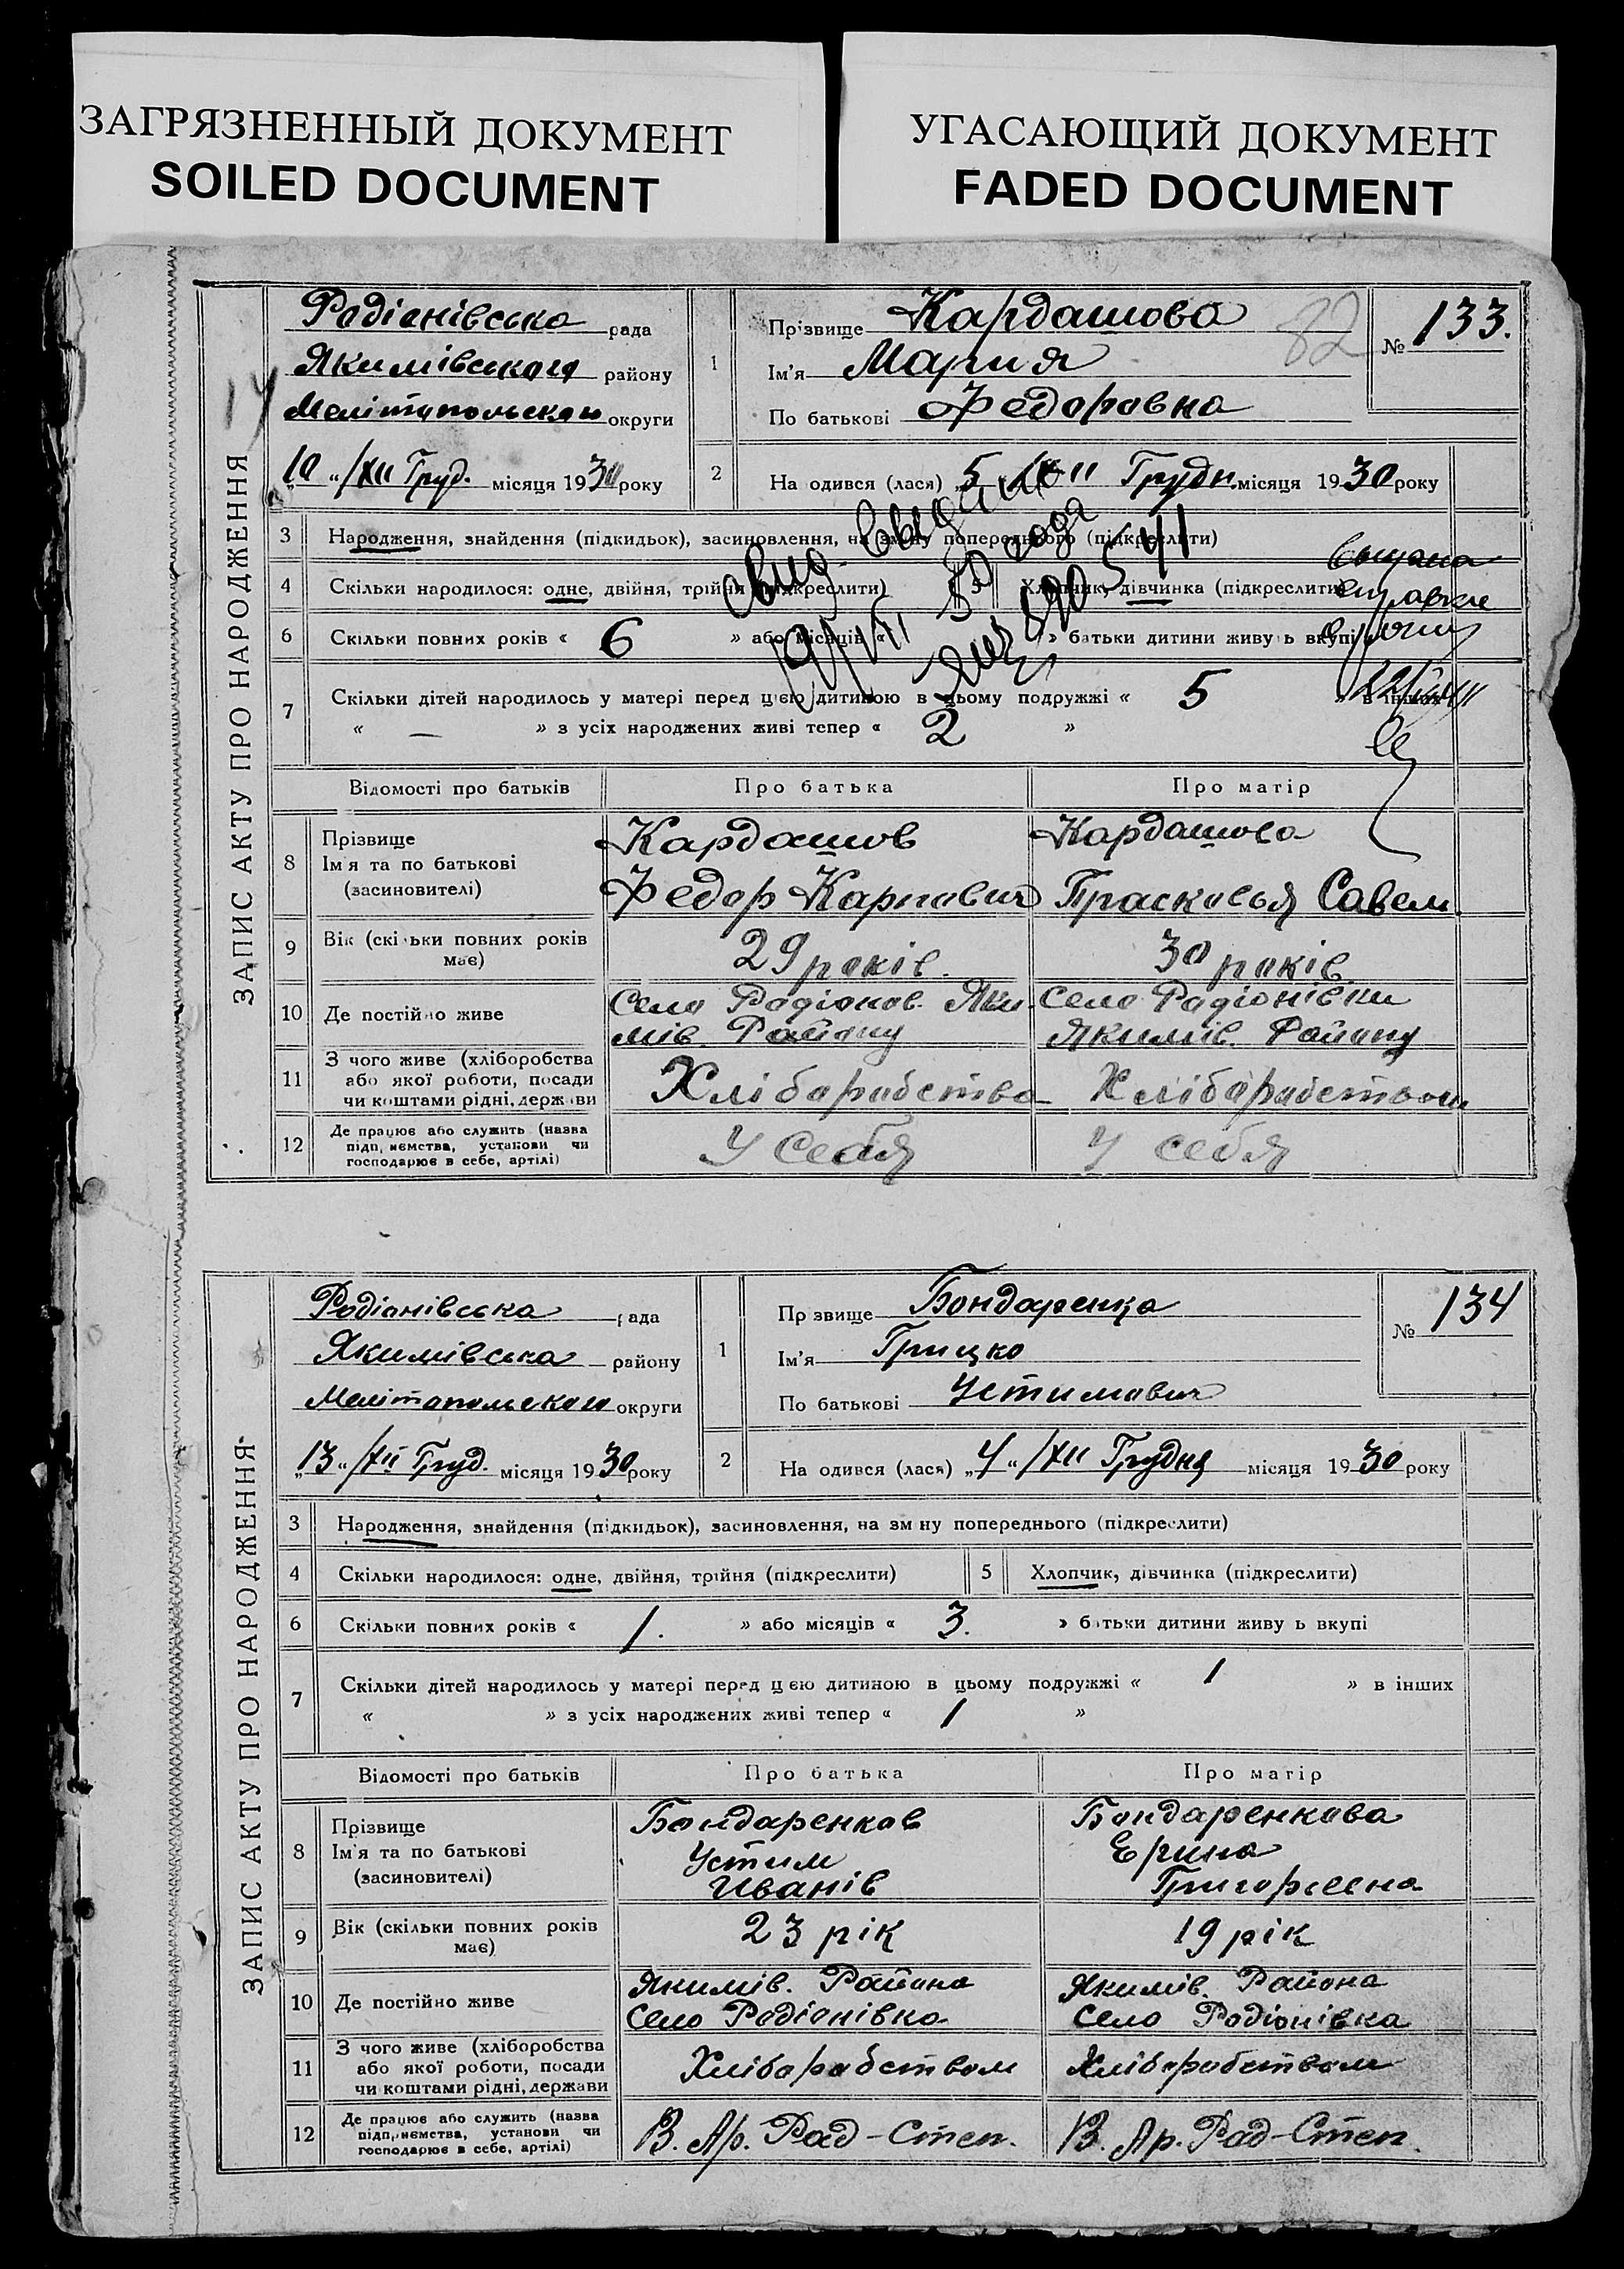 ЗАГРЯЗНЕННЫЙ ДОКУМЕНТ
SOILED DOCUMENT
УГАСАЮЩИЙ ДОКУМЕНТ
FADED DOCUMENT
ЗАПИС АКТУ ПРО НАРОДЖЕННЯ
14
Родіонівська рада
Якимівського району
Мелітопольскаго округи
„10“/XII Груд. місяця 1930 року
1 Прізвище Кардашова
82
№ 133.
Ім'я Мария
По батькові Федоровна
2 На одився (лася) 5 /XII Грудн. місяця 1930 року
3 Народження, знайдення (підкидьок), засиновлення, на зміну попереднього (підкреслити)
4 Скільки народилося: одне, двійня, трійня (підкреслити) 5 Хлопчик, дівчинка (підкреслити)
6 Скільки повних років « 6 » або місяців « » батьки дитини живуть вкупі
7 Скільки дітей народилось у матері перед цією дитиною в цьому подружжі « 5 » в інших
« — » з усіх народжених живі тепер « 2 »
года
Відомості про батьків Про батька Про матір
8 Прізвище Ім'я та по батькові (засиновителі)
Кардашов
Федор Карпович
Кардашова
Прасковья Савел.
9 Вік (скільки повних років має) 29 років. 30 років
10 Де постійно живе
Село Родіонов. Яки-
мів. Району
Село Радіонівки
Якимів. Району
11 З чого живе (хліборобства
або якої роботи, посади
чи коштами рідні, держави
Хліборобство Хліборобством
12 Де працює або служить (назва
підприємства, установи чи
господарює в себе, артілі)
У себя У себя
ЗАПИС АКТУ ПРО НАРОДЖЕННЯ
Родіонівська рада
Якимівська району
Мелітопольскаго округи
„13“/XII Груд. місяця 1930 року
1 Пр звище Бондаренко
№ 134
Ім'я Грицко
По батькові Устимович
2 На одився (лася) „4“/XII Грудня місяця 1930 року
3 Народження, знайдення (підкидьок), засиновлення, на зм ну попереднього (підкреслити)
4 Скільки народилося: одне, двійня, трійня (підкреслити) 5 Хлопчик, дівчинка (підкреслити)
6 Скільки повних років « 1. » або місяців « 3. » батьки дитини живу ь вкупі
7 Скільки дітей народилось у матері перед цією дитиною в цьому подружжі « 1 » в інших
« » з усіх народжених живі тепер « 1 »
Відомості про батьків Про батька Про матір
8 Прізвище Ім'я та по батькові (засиновителі)
Бондаренков
Устим
Иванів
Бондаренкова
Ерина
Григорьевна
9 Вік (скільки повних років має) 23 рік 19 рік
10 Де постійно живе
Якимів. Района
Село Родіонівка
Якимів. Района
Село Родіонівка
11 З чого живе (хліборобства
або якої роботи, посади
чи коштами рідні, держави
Хліборобством Хліборобством
12 Де працює або служить (назва
підприємства, установи чи
господарює в себе, артілі)
В. Ар. Рад-Степ. В. Ар. Рад-Степ.